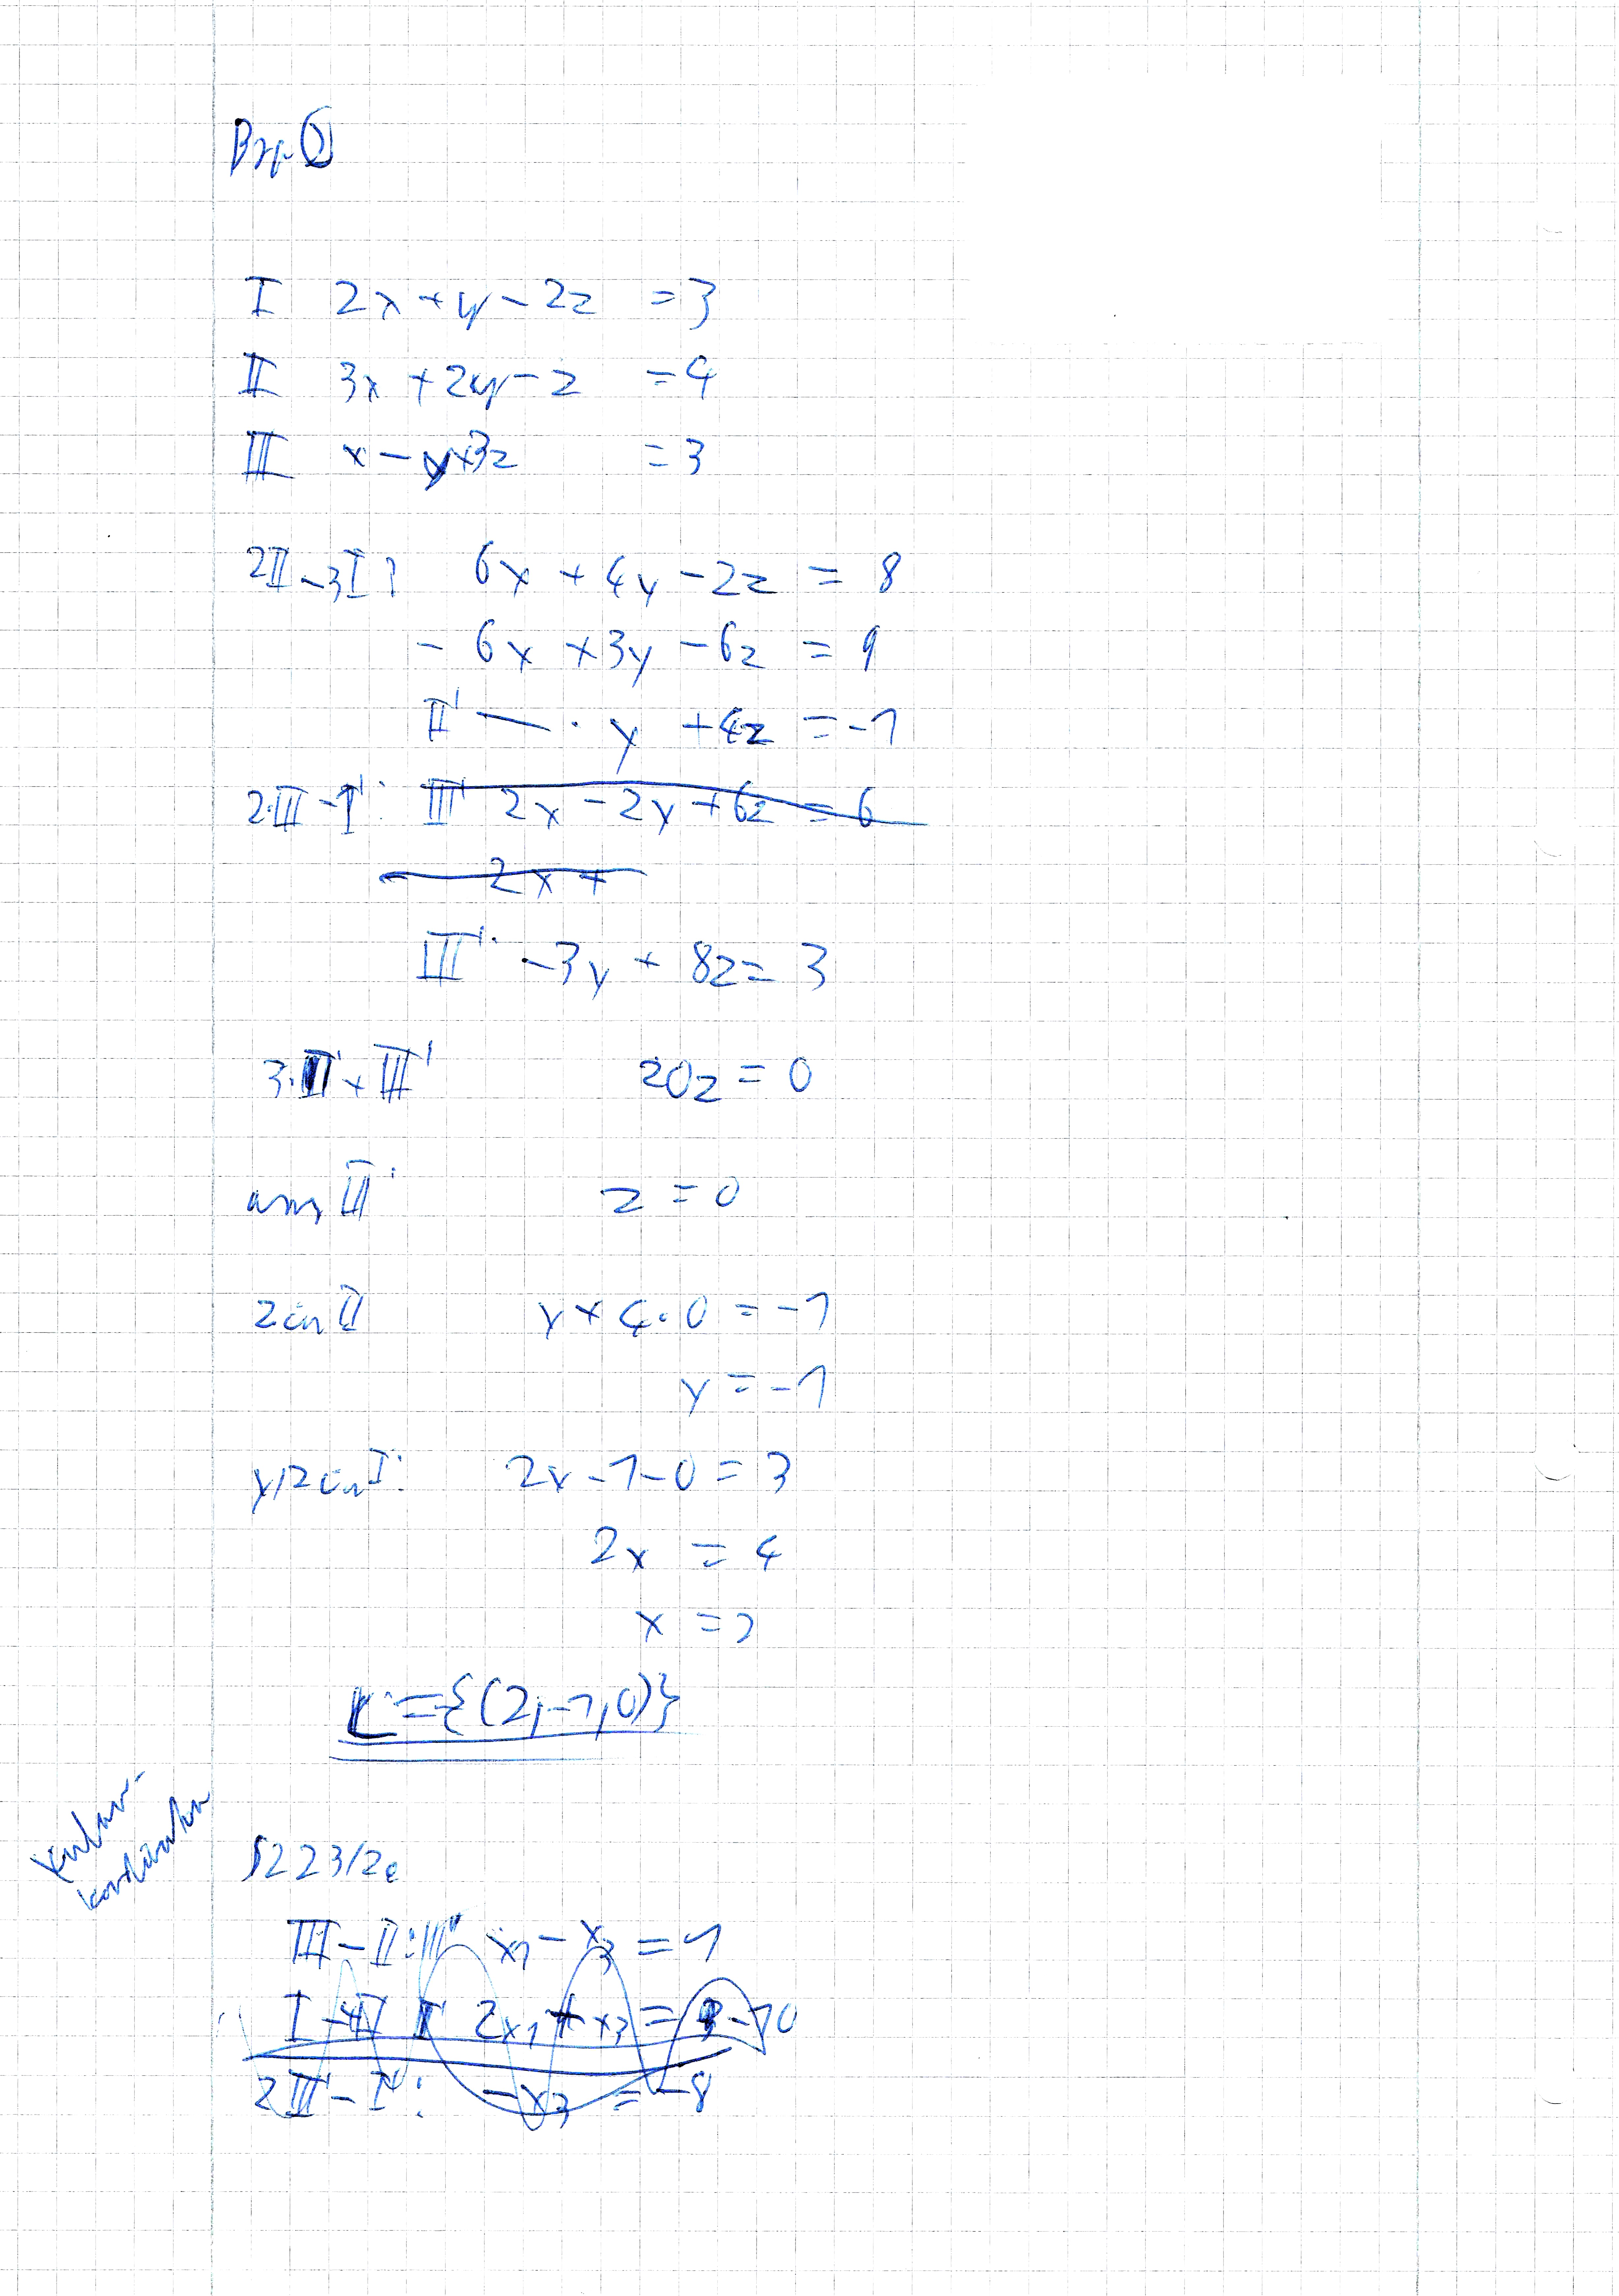 Bsp. ②
I 2x + y - 2z = 3
II 3x + 2y - z = 4
III x - y + 3z = 3
2II - 3I: 6x + 4y - 2z = 8
- 6x + 3y - 6z = 9
II' — · y + 4z = -1
2·III - I: III' 2x - 2y + 6z = 6
2x +
III': -3y + 8z = 3
3·II' + III' 20z = 0
aus III' z = 0
z in II y + 4·0 = -1
y = -1
y,z in I: 2x - 1 - 0 = 3
2x = 4
x = 2
L = {(2,-1,0)}
S223/2e
III - II: III' x₁ - x₃ = 1
I - 4II I' 2x₁ + x₃ = -10
2III' - I': -x₃ = -8